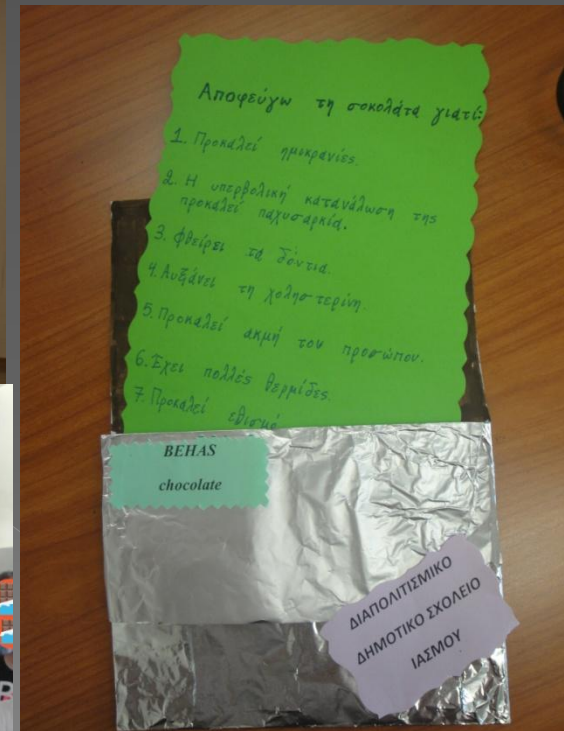 Αποφεύγω τη σοκολάτα γιατί:
1. Προκαλεί ημικρανίες.
2. Η υπερβολική κατανάλωση της
προκαλεί παχυσαρκία.
3. Φθείρει τα δόντια.
4. Αυξάνει τη χοληστερίνη.
5. Προκαλεί ακμή του προσώπου.
6. Έχει πολλές θερμίδες.
7. Προκαλεί εθισμό
BEHAS
chocolate
ΔΙΑΠΟΛΙΤΙΣΜΙΚΟ
ΔΗΜΟΤΙΚΟ ΣΧΟΛΕΙΟ
ΙΑΣΜΟΥ